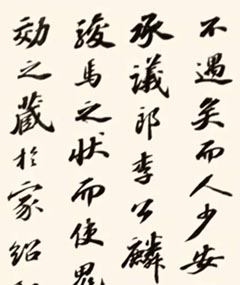 不遇矣而人少安
承議郎李公麟
駿馬之狀而使
効之藏於家紹